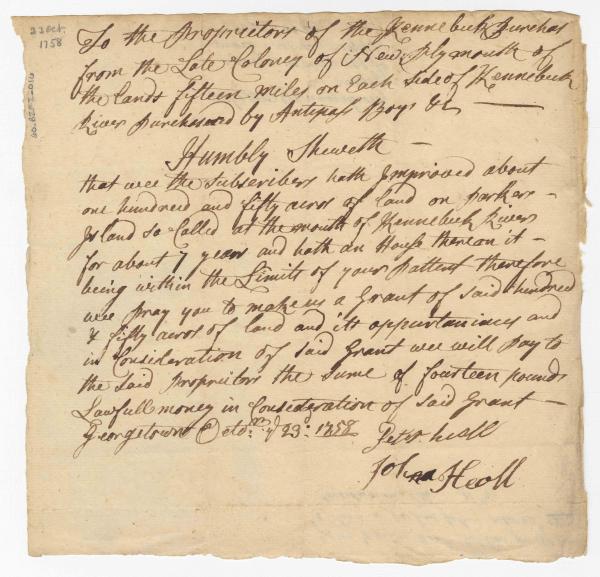 22 Oct.
1758
To the Proprietors of the Kennebeck Purchas
from the Late Colony of New Plymouth of
the lands fifteen miles on Each side of Kennebeck
River Purchased by Antipass Boys &c
Humbly Sheweth
that wee the Subscribers hath Improved about
one hundred and fifty acros of land on Parkers
Island so Called at the mouth of Kennebeck River
for about 7 years and hath an House thereon it
being within the Limits of your Pattent therefore
wee Pray you to make us a Grant of said hundred
& fifty acros of land and its appurtainces and
in Consideration of said Grant wee will Pay to
the said Propriitors the sume of fourteen pounds
Lawfull money in Consideration of said Grant
Georgetown Octobr ye 23d 1758
Peter
John